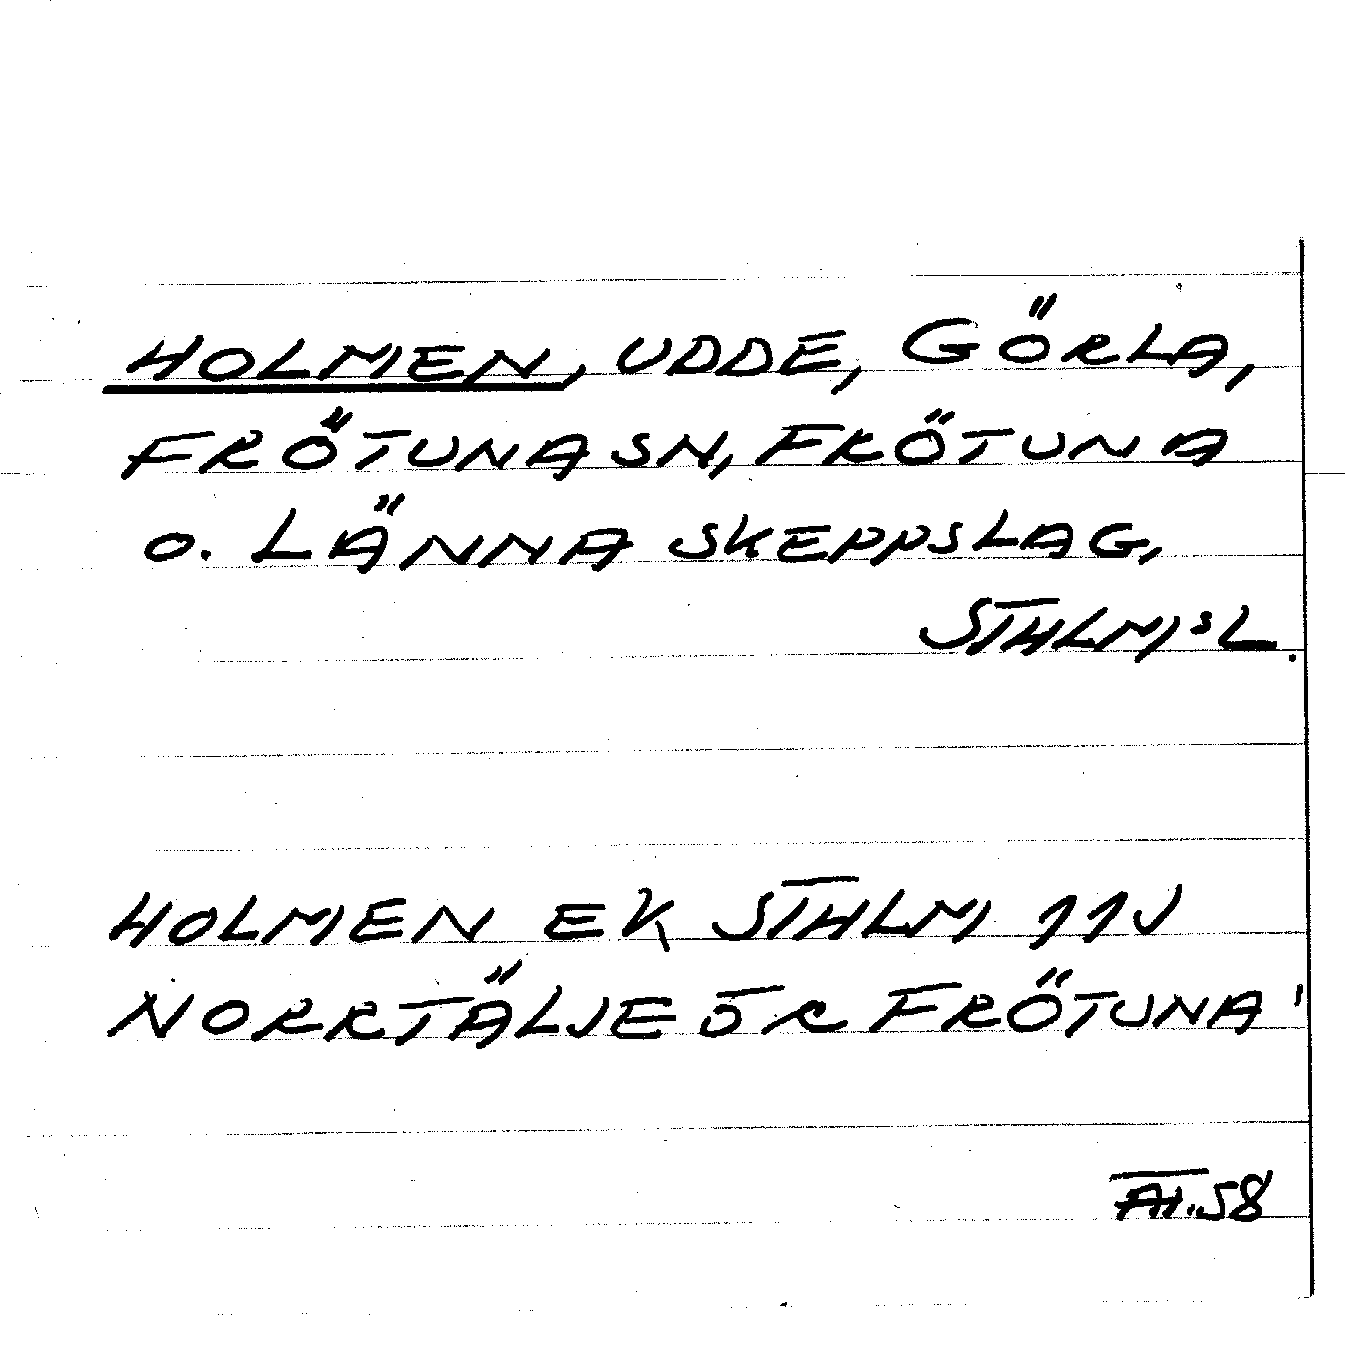 HOLMEN, UDDE, GÖRLA,
FRÖTUNA SN, FRÖTUNA
O. LÄNNA SKEPPSLAG,
STHLMSL.
HOLMEN EK STHLM 11J
NORRTÄLJE 5R FRÖTUNA
58